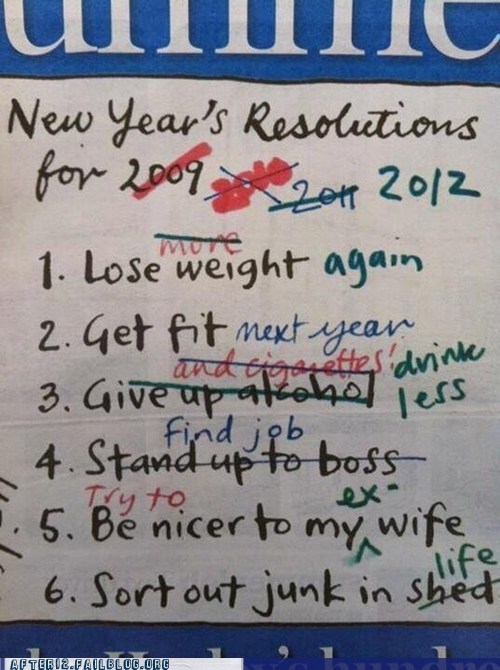 New Year's Resolutions
for 2009 2011 2012
more
1. Lose weight again
2. Get fit next year
and cigarettes! drink
3. Give up alcohol less
find job
4. Stand up to boss
Try to ex-
5. Be nicer to my wife
life
6. Sort out junk in shed
AFTER12.FAILBLOG.ORG